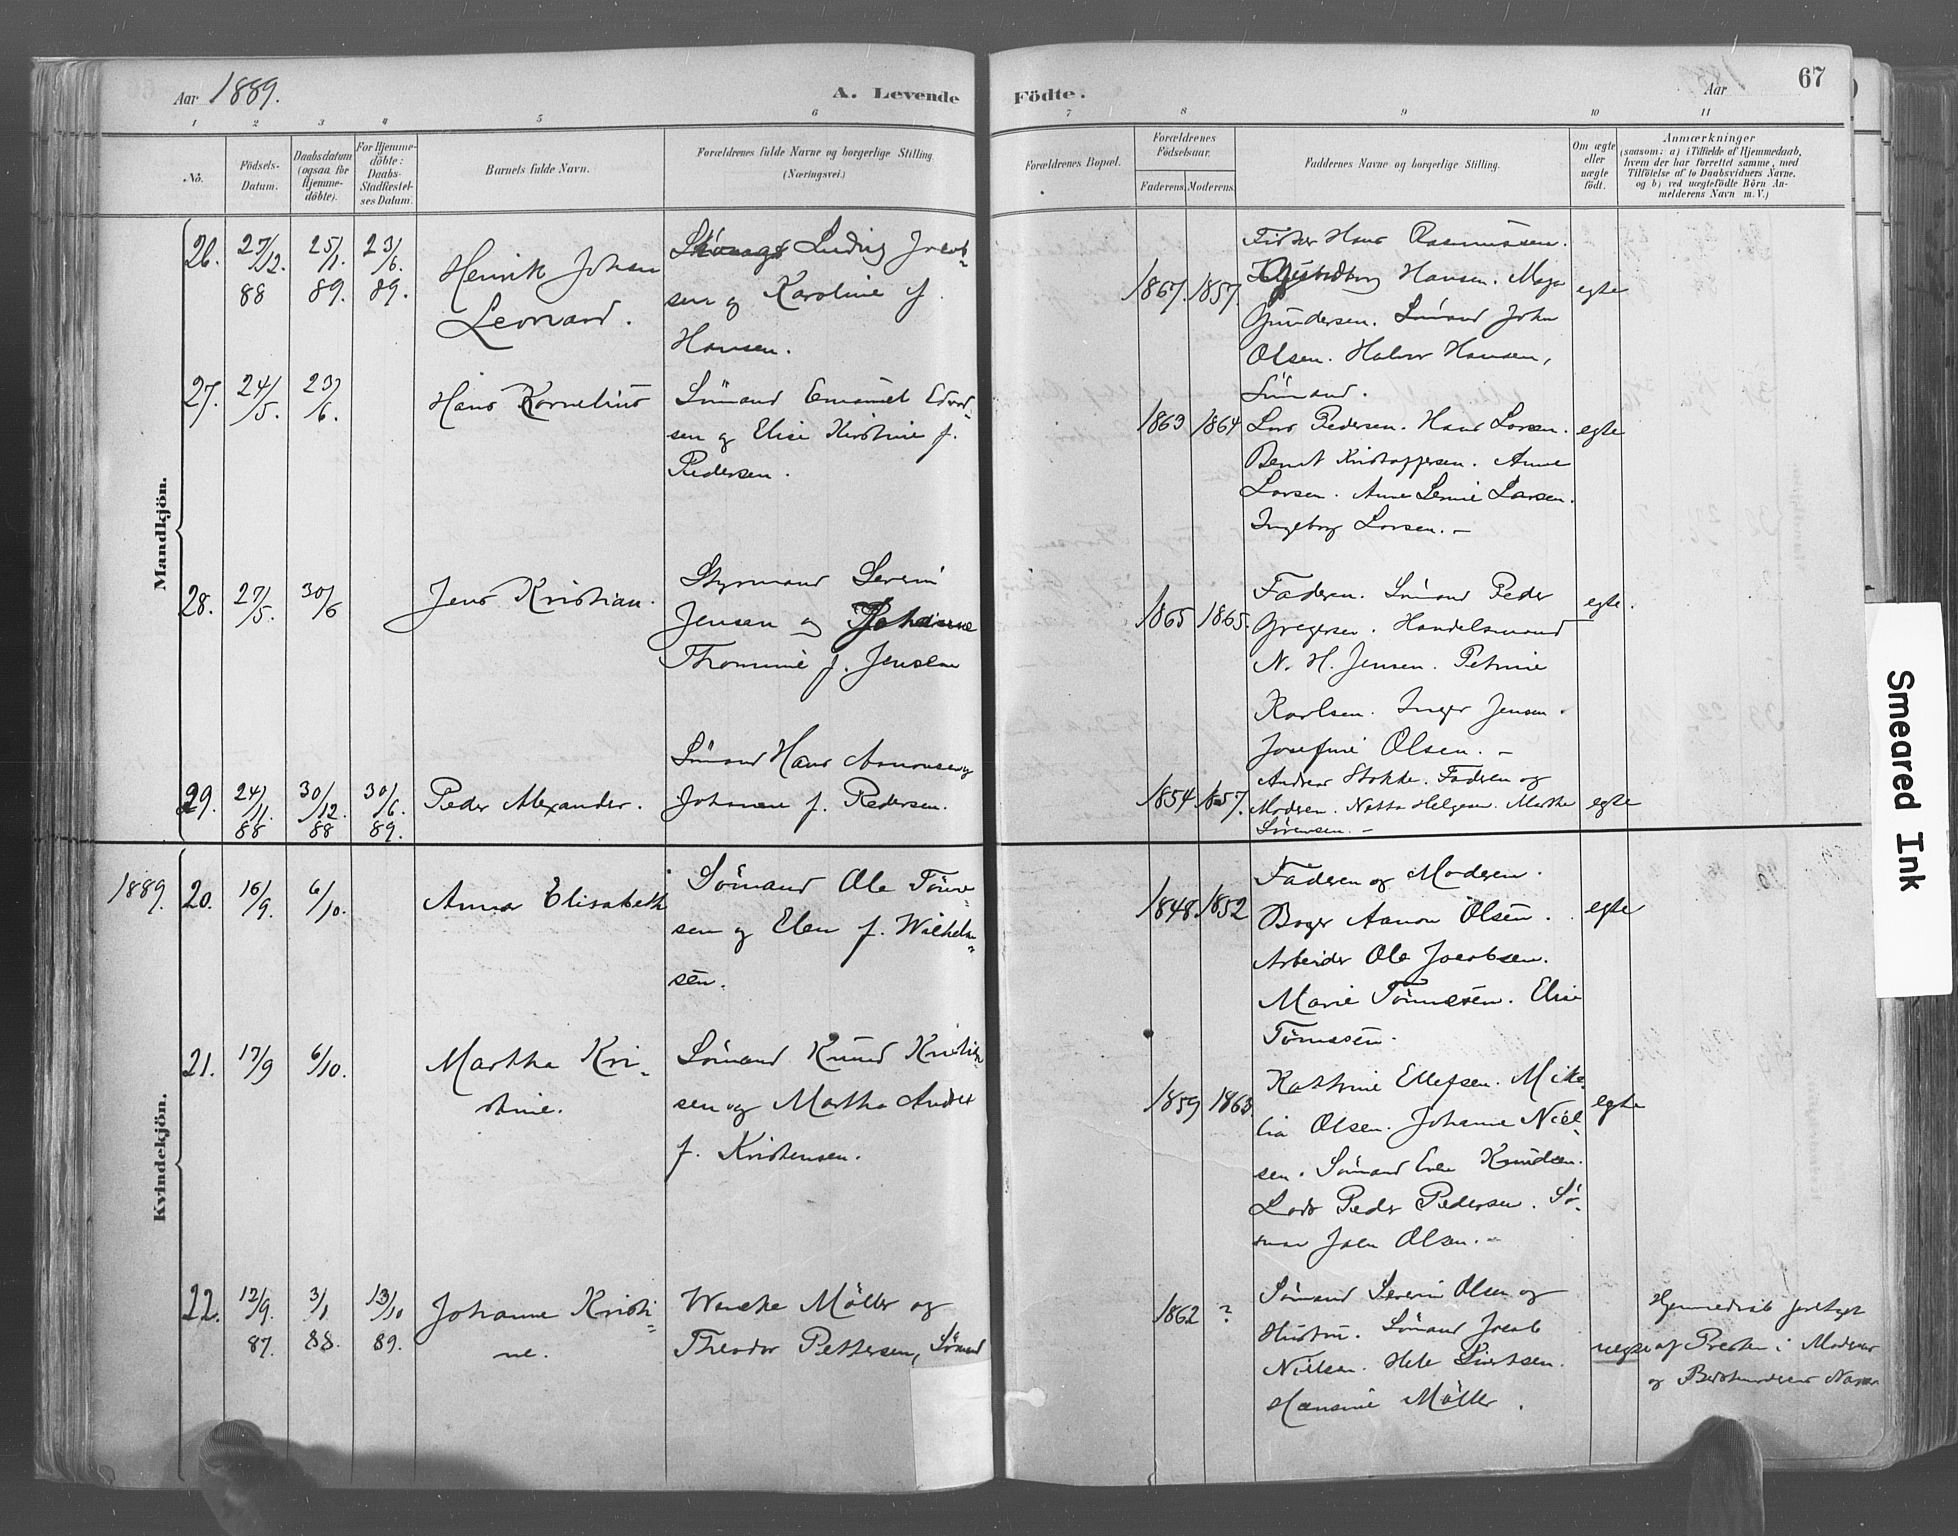 Aar 1889.
A. Levende
Födte.
Aar
67
1 2 3 4 5 6 7 8 9 10 11
No.
Födsels-
Datum.
Daabsdatum
(ogsaa for
Hjemme-
döbte).
For Hjemme-
döbte:
Daabs-
Stadfæstel-
ses Datum.
Barnets fulde Navn.
Forældrenes fulde Navne og borgerlige Stilling
(Næringsvei.)
Forældrenes Bopæl.
Forældrenes
Födselsaar.
Faderens. Moderens.
Faddernes Navne og borgerlige Stilling.
Om ægte
eller
uægte
födt.
Anmærkninger
(saasom: a) i Tilfælde af Hjemmedaab,
hvem der har forrettet samme, med
Tilföielse af to Daabsvidners Navne.
og b) ved uægtefödte Börn An-
melderens Navn m. V.)
Mandkjön.
26.
27/12.
88
25/1.
89.
23/6.
89.
Henrik Johan
Leonard.
Ludvig Jacob-
sen og Karoline f.
Hansen.
1867. 1857.
Fisker Hans Rasmussen.
Hansen. Maja
Gundersen. Sömand John
Olsen. Halvor Hansen,
Sömand.
egte
27.
24/5.
23/6.
Hans Kornelius
Sömand Emanuel Edvard-
sen og Elise Kirstine f.
Pedersen.
1863 1864
Lars Pedersen. Hans Larsen.
Bernt Kristoffersen. Anne
Larsen. Anne Larsen.
Ingeborg Larsen. –
egte
28.
27/5.
30/6
Jens Kristian.
Styrmand Severin
Jensen og Johanne
Thomine f. Jensen
1865 1865.
Faderen. Sömand Peder
Gregersen. Handelsmand
N. H. Jensen. Petrine
Karlsen. Inger Jensen.
Josefine Olsen. –
egte.
29.
24/11.
88
30/12.
88
30/6.
89.
Peder Alexander.
Sömand Hans Aanonsen og
Johanne f. Pedersen.
1854. 1857.
Andreas Stokke. Faderen og
Moderen. Netta Helgesen. Marthe
Sörensen. –
egte
Kvindekjön.
1889.
20.
16/9.
6/10.
Anna Elisabeth
Sömand Ole Tönne-
sen og Elen f. Wilhelm-
sen.
1848. 1852
Faderen og Moderen.
Aanon Olsen.
Arbeider Ole Jacobsen.
Marie Tönnesen. Elise
Tönnesen.
egte
21.
17/9
6/10.
Martha Kri-
stine.
Sömand Knud Kristian-
sen og Martha
f. Kristensen.
1859 1863.
Kathrine Ellefsen. Mika-
lia Olsen. Johanne Niel-
sen. Sömand Even Knudsen.
Lods Peder Pedersen. Sö-
man Olsen. –
egte
22.
12/9.
87.
3/1
88.
13/10
89.
Johanne Kristi-
ne.
Wencke Möller og
Theodor Pettersen, Sömand
1862 ?
Sömand Severin Olsen og
Hustru. Sömand Jacob
Nielsen. Sivertsen.
Hansine Möller.
uegte
Hjemmedaab foretaget
af Presten i Moderens
og Navn
Smeared Ink